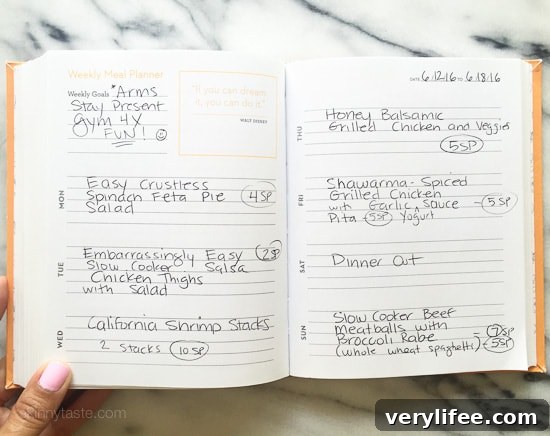 Weekly Meal Planner
Weekly Goals *Arms
Stay Present
Gym 4X
FUN! ☺
"If you can dream
it, you can do it."
WALT DISNEY
MON
Easy Crustless
Spinach Feta Pie 4 SP
Salad
TUE
Embarrassingly Easy 2 SP
Slow Cooker Salsa
Chicken Thighs
with Salad
WED
California Shrimp Stacks
2 Stacks 10 SP
DATE 6.12.16 TO 6.18.16
THU
Honey Balsamic
Grilled Chicken and Veggies
5 SP
FRI
Shawarma-Spiced
Grilled Chicken
with Garlic Sauce - 5 SP
Pita - 5 SP Yogurt
SAT
Dinner Out
SUN
Slow Cooker Beef
meatballs with
Broccoli Rabe - 7 SP
(whole wheat spaghetti) - 5 SP
skinnytaste.com
verylifee.com